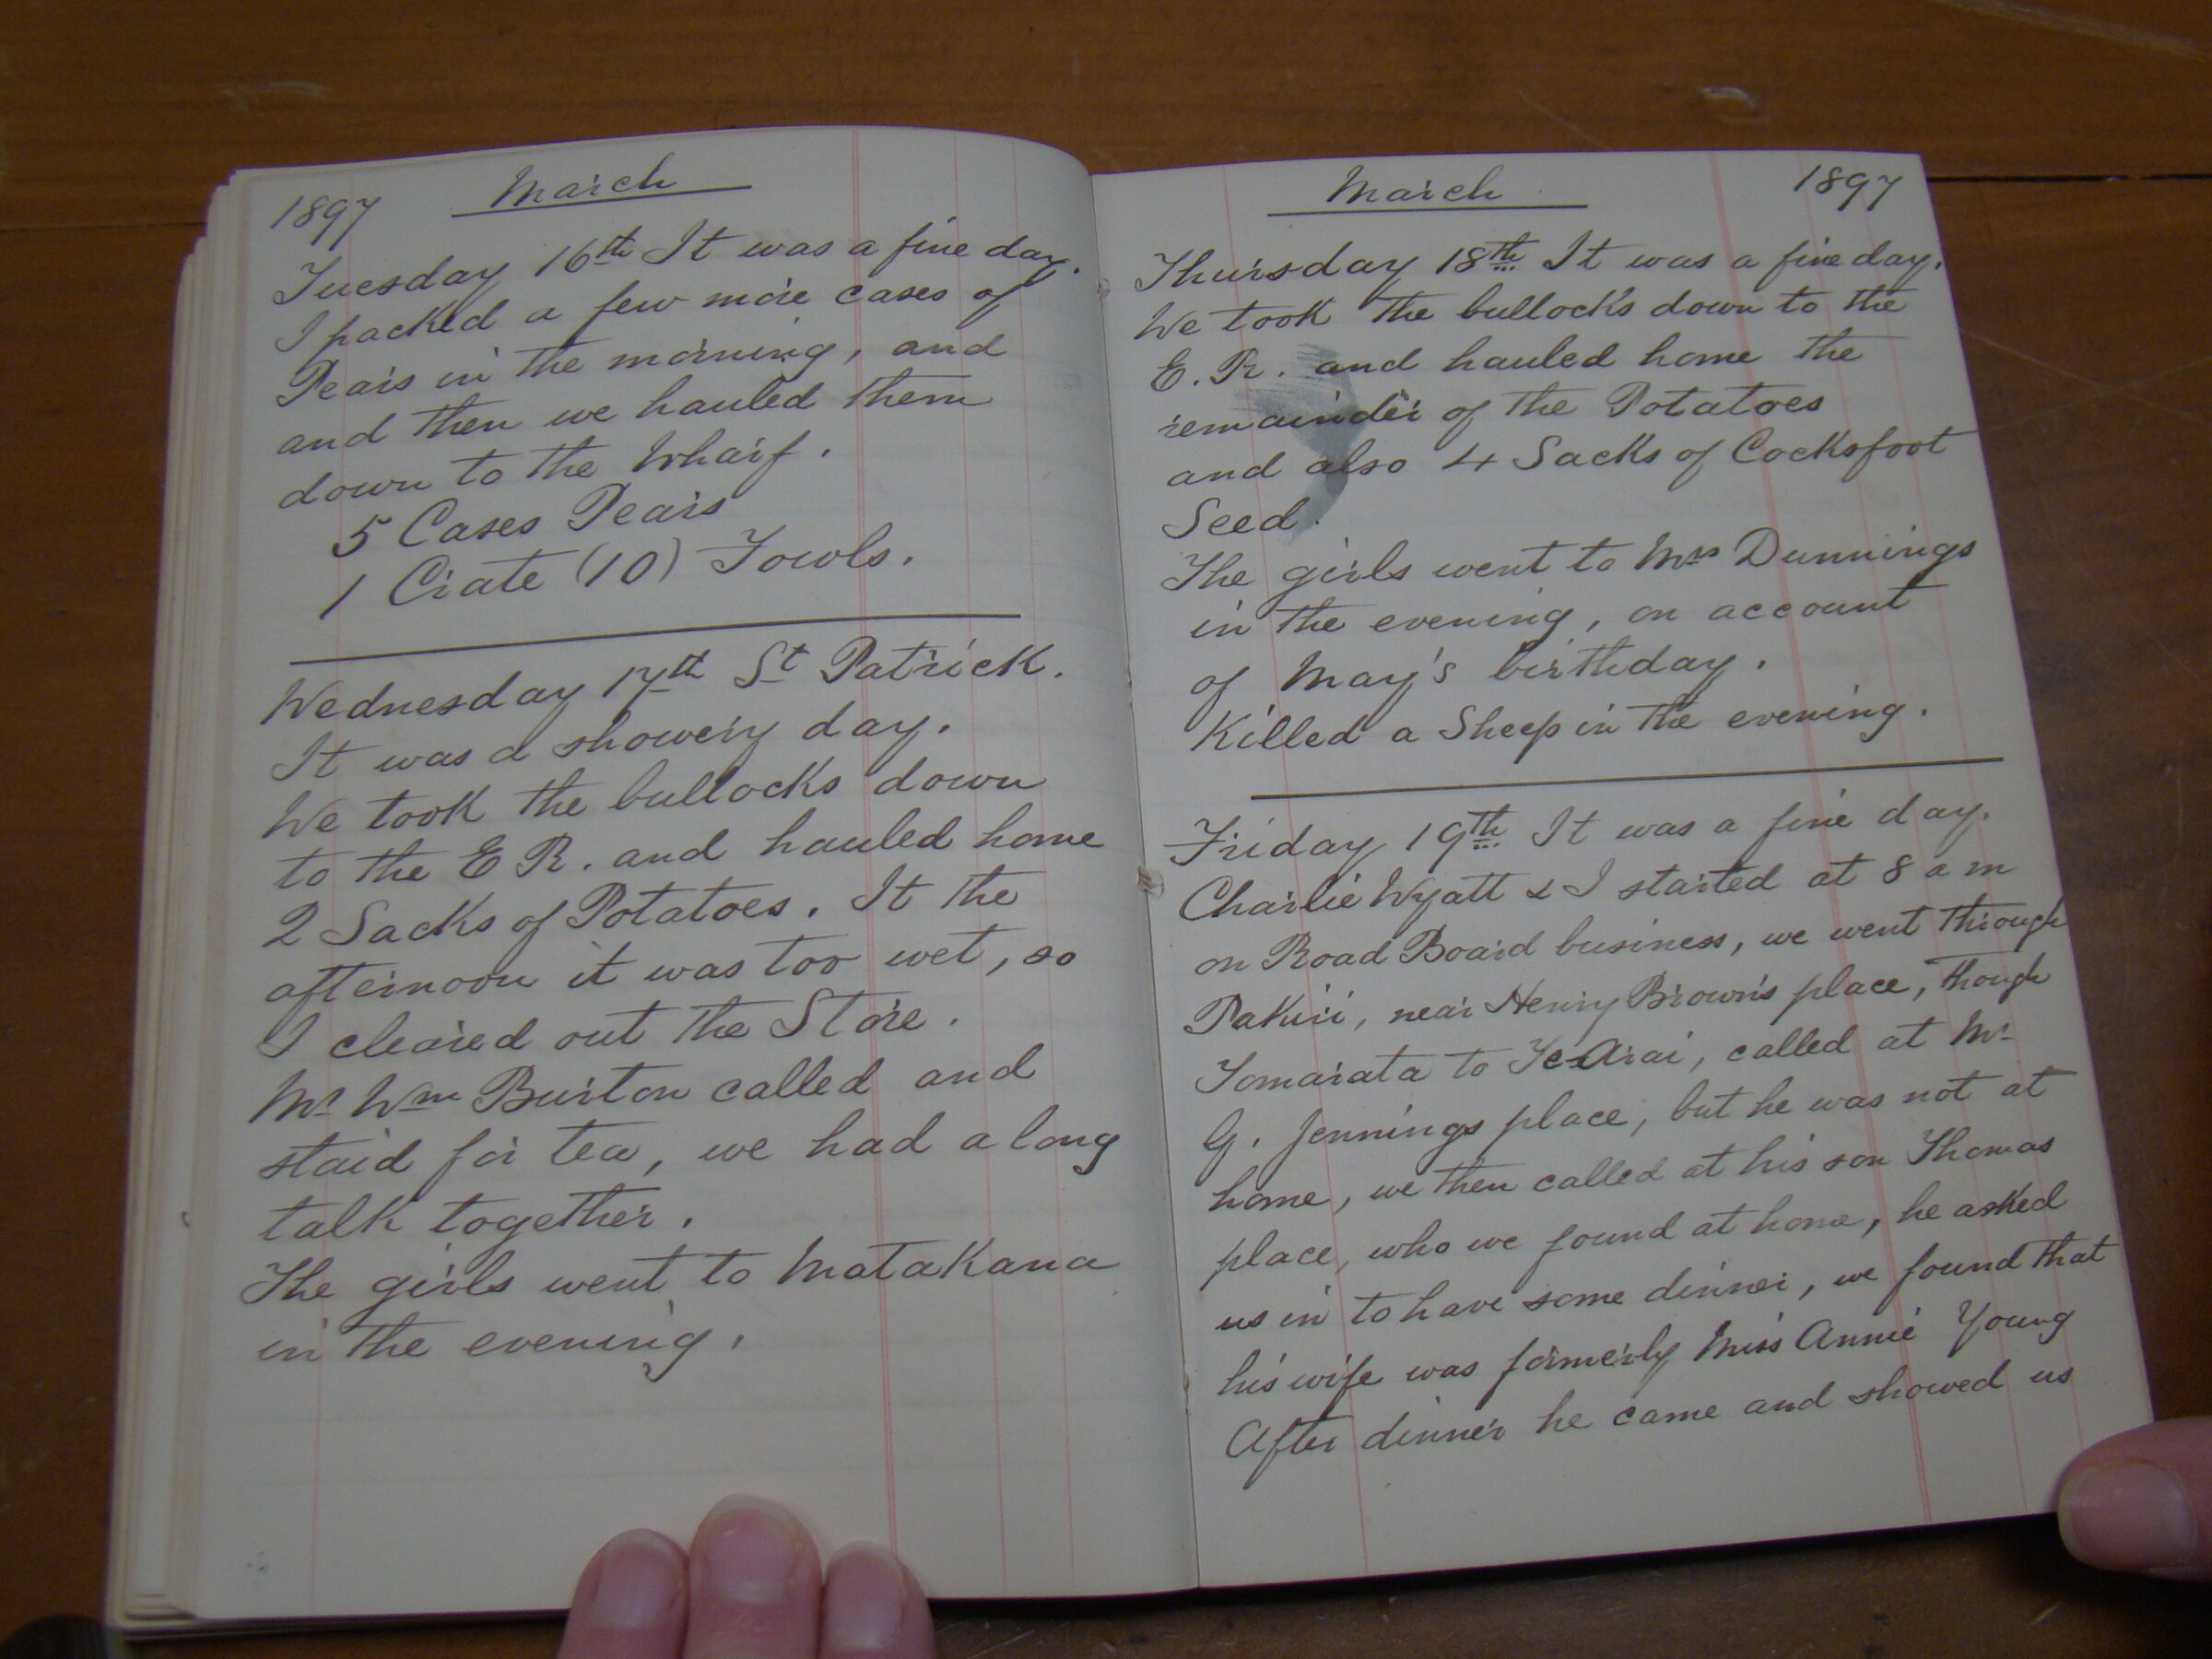 1897 March
Tuesday 16th It was a fine day.
I packed a few more cases of
Pears in the morning, and
and then we hauled them
down to the Wharf.
5 Cases Pears
1 Crate (10) Fowls.
Wednesday 17th St Patrick.
It was a showery day.
We took the bullocks down
to the E R. and hauled home
2 Sacks of Potatoes. It the
afternoon it was too wet, so
I cleared out the Store.
Mr Wm Burton called and
staid for tea, we had a long
talk together.
The girls went to Matakana
in the evening.
March 1897
Thursday 18th It was a fine day.
We took the bullocks down to the
E. R. and hauled home the
remainder of the Potatoes
and also 4 Sacks of Cocksfoot
Seed.
The girls went to Mrs Dunnings
in the evening, on account
of May's birthday.
Killed a Sheep in the evening.
Friday 19th It was a fine day.
Charlie Wyatt & I started at 8 a m
on Road Board business, we went through
Pakiri, near Henry Brown's place, though
Tomarata to Te-Arai, called at Mr
G. Jennings place, but he was not at
home, we then called at his son Thomas
place, who we found at home, he asked
us in to have some dinner, we found that
his wife was formerly Miss Annie Young
After dinner he came and showed us